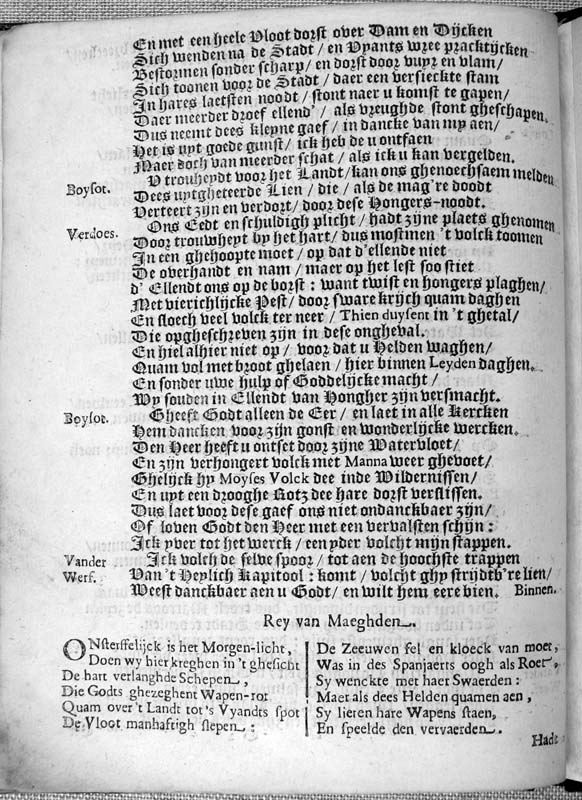 En met een heele Vloot dorst over Dam en Dijcken
Sich wenden na de Stadt / en Vyants wree practijcken
Bestormen sonder scharp / en dorst door vuyr en vlam /
Sich toonen voor de Stadt / daer een versieckte stam
In hares laetsten noodt / stont naer u komst te gapen /
Daer meerder droef ellend' / als vreughde stont gheschapen.
Dus neemt dees kleyne gaef / in dancke van my aen /
Het is uyt goede gunst / ick heb de u ontfaen
Maer doch van meerder schat / als ick u kan vergelden.
Boysot. V trouheydt voor het Landt / kan ons ghenoechsaem melden
Dees uytgheteerde Lien / die / als de mag're doodt
Verteert zijn en verdort / door dese Hongers-noodt.
Verdoes. Ons Eedt en schuldigh plicht / hadt zijne plaets ghenomen
Door trouwheyt by het hart / dus mosten 't volck toomen
In een ghehoopte moet / op dat d'ellende niet
De overhandt en nam / maer op het lest soo stiet
d' Ellendt ons op de borst : want twist en hongers plaghen /
Met vierichlijcke Pest / door sware krijch quam daghen
En sloech veel volck ter neer / Thien duysent in 't ghetal /
Die opgheschreven zijn in dese ongheval.
En hiel alhier niet op / voor dat u Helden waghen /
Quam vol met broot ghelaen / hier binnen Leyden daghen.
En sonder uwe hulp of Goddelijcke macht /
Wy souden in Ellendt van Hongher zijn versmacht.
Boysot. Gheeft Godt alleen de Eer / en laet in alle Kercken
Hem dancken voor zijn gonst en wonderlijcke wercken.
Den Heer heeft u ontset door zijne Watervloet /
En zijn verhongert volck met Manna weer ghevoet /
Ghelijck hy Moyses Volck dee inde Wildernissen /
En uyt een drooghe Rotz dee hare dorst verslissen.
Dus laet voor dese gaef ons niet ondanckbaer zijn /
Of loven Godt den Heer met een vervalsten schijn :
Ick yver tot het werck / een yder volcht mijn stappen.
Vander Werf. Ick volch de selve spoor / tot aen de hoochste trappen
Van 't Heylich Kapitool : komt / volcht ghy strijdtb're lien /
Weest danckbaer aen u Godt / en wilt hem eere bien. Binnen.
Rey van Maeghden.
ONsterffelijck is het Morgen-licht,
Doen wy hier kreghen in 't ghesicht
De hart verlanghde Schepen,
Die Godts ghezeghent Wapen-rot
Quam over 't Landt tot's Vyandts spot
De Vloot manhaftigh slepen :
De Zeeuwen fel en kloeck van moet,
Was in des Spanjaerts oogh als Roet,
Sy wenckte met haer Swaerden :
Maer als dees Helden quamen aen,
Sy lieren hare Wapens staen,
En speelde den vervaerden.
Hadt